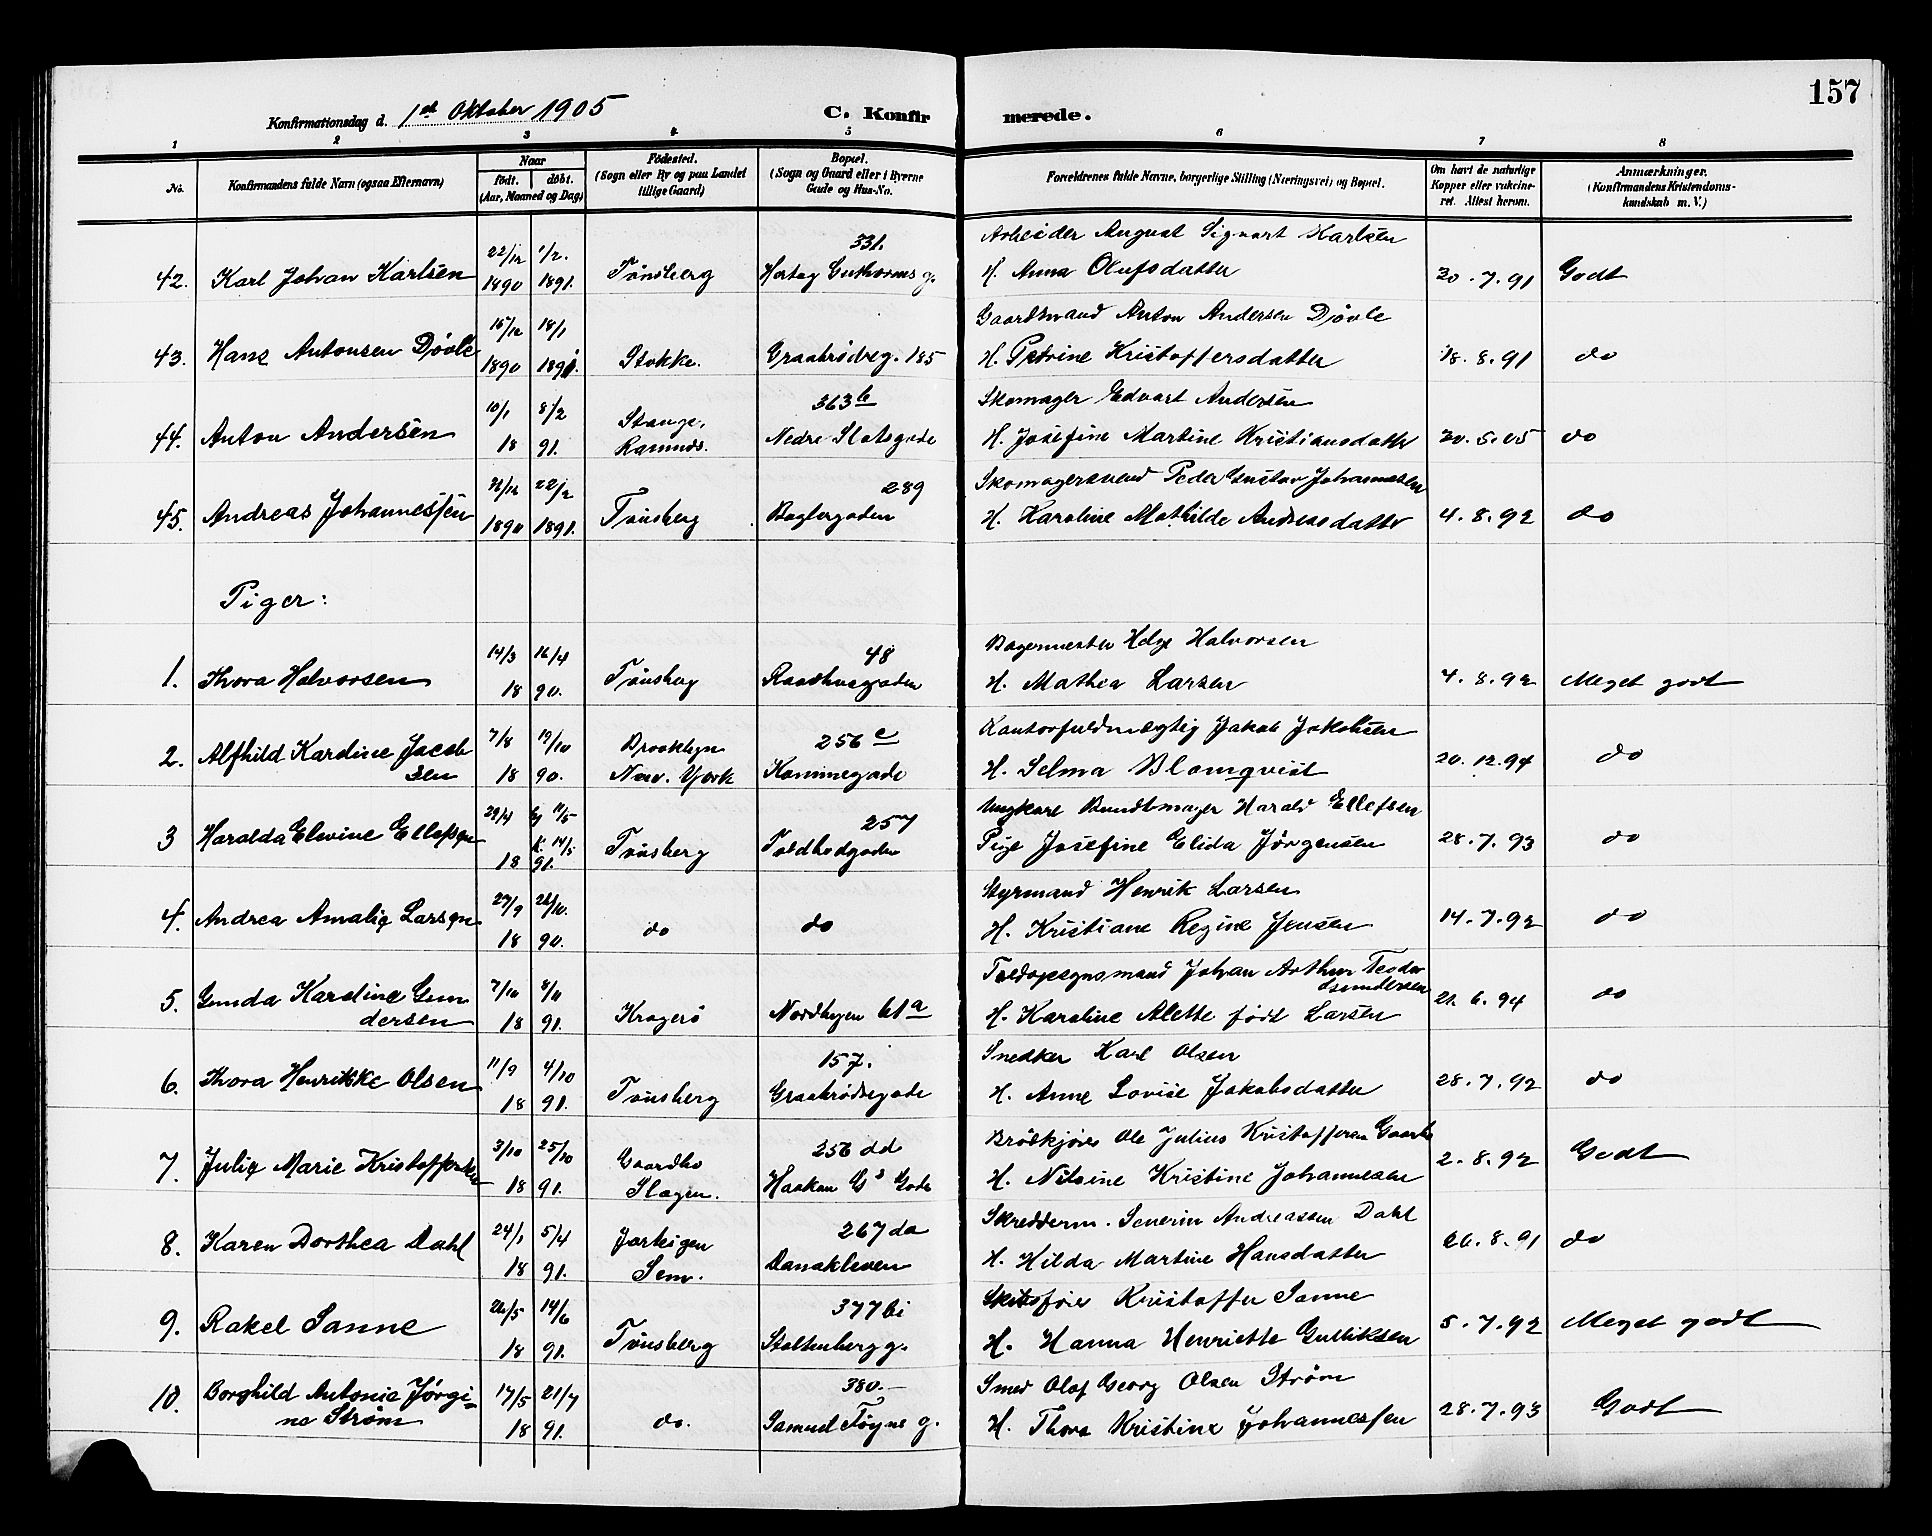 157
Konfirmationsdag d. 1ste Oktober 1905 C. Konfirmerede.
1 2 3 4 5 6 7 8
No. Konfirmandens fulde Navn (ogsaa Efternavn) Naar født. døbt. (Aar, Maaned og Dag) Fødested. (Sogn eller By og paa Landet tillige Gaard) Bopæl. (Sogn og Gaard eller i Byerne Gade og Hus-No. Forældrenes fulde Navne, borgerlige Stilling (Næringsvei) og Bopæl. Om havt de naturlige Kopper eller vakcineret. Attest herom. Anmærkninger. (Konfirmandens Kristendomskundskab m. V.)
22/12 1/2. 331. Arbeider August Sigvart Karlsen
42. Karl Johan Karlsen 1890 1891. Tönsberg Hertug Guthorms g. H. Anna Olufsdatter 30.7.91 Godt
15/12 18/1 Gaardmand Anton Andersen Djövle
43. Hans Antonsen Djövle 1890 1891. Stokke. Graabrödreg. 185 H. Petrine Kristoffersdatter 18.8.91 do
10/1 8/2 Stange, 363 b Skomager Edvart Andersen
44. Anton Andersen 18 91. Ramnæs. Nedre Slotsgade H. Josefine Martine Kristiansdatter 20.5.05 do
22/2 289 Skomagersvend Peder Gustav Johannessen
45. Andreas Johannessen 1890 1891. Tönsberg Baglergaden H. Karoline Mathilde Andreasdatter 4.8.92 do
Piger:
14/3 16/4 48 Bagermester Helge Halvorsen
1. Thora Halvorsen 18 90. Tönsberg Raadhusgaden H. Mathea Larsen 4.8.92 Meget godt
7/8 19/10 Brooklyn 256 c Kontorfuldmægtig Jakob Jakobsen
2. Alfhild Kardine Jacobsen 18 90. New. York Kammegade H. Selma Blomqvist 20.12.94 do
29/4 11/5 k. 14/5 257 Ungkarl Bundtmager Harald Ellefsen
3 Haralda Elevine Ellefsen 18 91. Tönsberg Toldbodgaden Pige Josefine Elida Jörgensen 28.7.93 do
27/9 26/10. Styrmand Henrik Larsen
4. Andrea Amalie Larsen 18 90. do do H. Kristiane Regine Jensen 14.7.92 do
7/10 8/11 Toldopsynsmand Johan Arthur Teodor Gundersen
5. Gunda Karoline Gundersen 18 91. Kragerö Nordbyen 61 a H. Karoline Alette födt Larsen 21.6.94 do
11/9 4/10 157. Snedker Karl Olsen
6. Thora Henrikke Olsen 18 91. Tönsberg Graabrödregade H. Anne Lovise Jakobsdatter 28.7.92 do
3/10 25/10 Gaardbo 256 dd Brödkjörer Ole Julius Kristoffersen Gaarbo
7. Julie Marie Kristoffersen 18 91. Slagen. Haakon G s Gade H. Nitrine Kristine Johannessen 2.8.92 Godt
24/1 5/4 267 da Skredderm. Severin Andreassen Dahl
8. Karen Dorthea Dahl 18 91. Sem. Danakleven H. Hilda Martine Hansdatter 26.8.91 do
26/5 14/6 377 bi Skibsförer Kristoffer Sanne
9. Rakel Sanne 18 91. Tönsberg Stoltenberg g. H. Hanna Henriette Gulliksen 5.7.92 Meget godt
17/5 21/7 380.- Smed Olaf Georg Olsen Ström
10. Borghild Antonia Jörgine Ström 18 91. do. Samuel Föyns g. H. Thora Kristine Johannessen 28.7.93 Godt